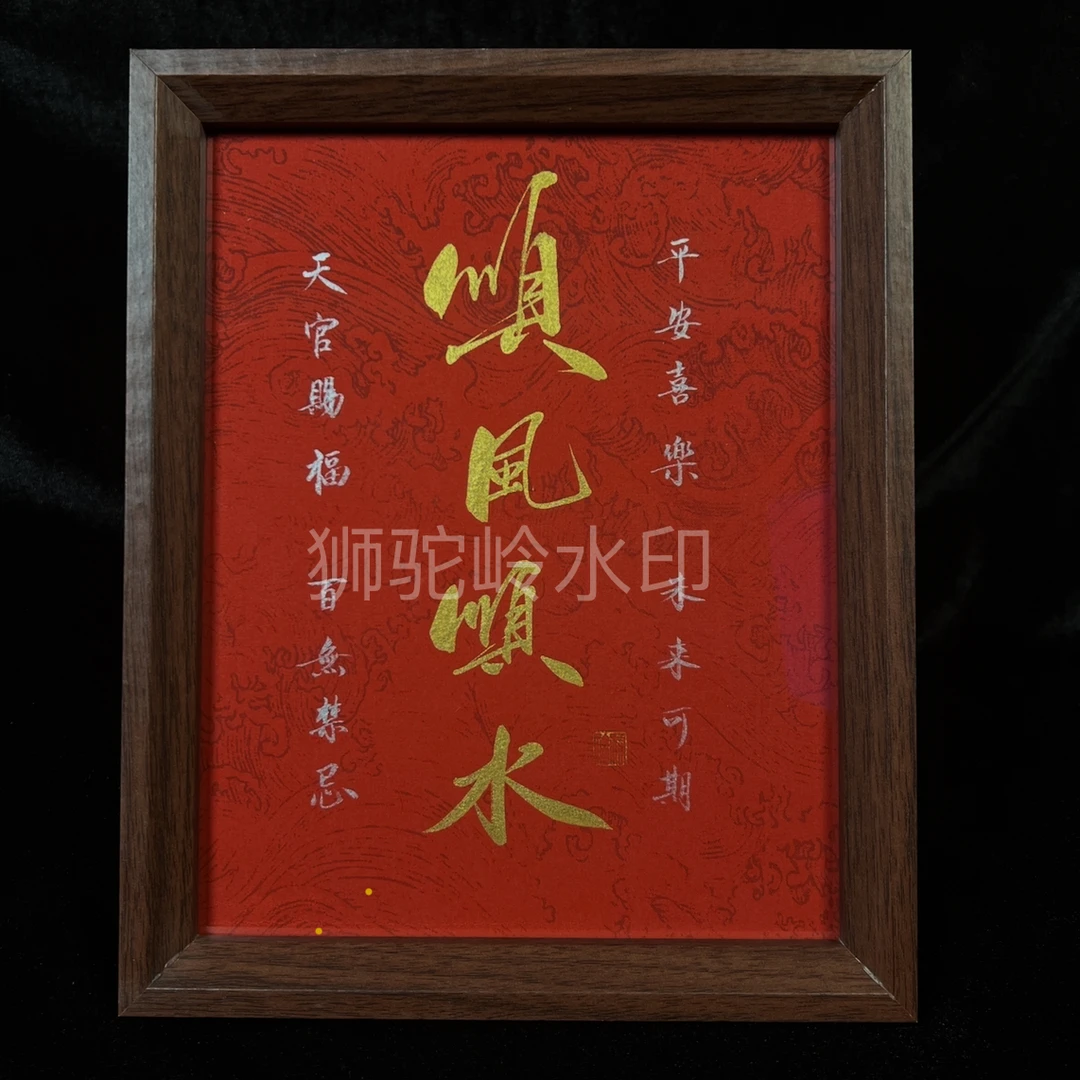 平安喜樂 未来可期
順風順水
天官賜福 百無禁忌
狮驼岭水印